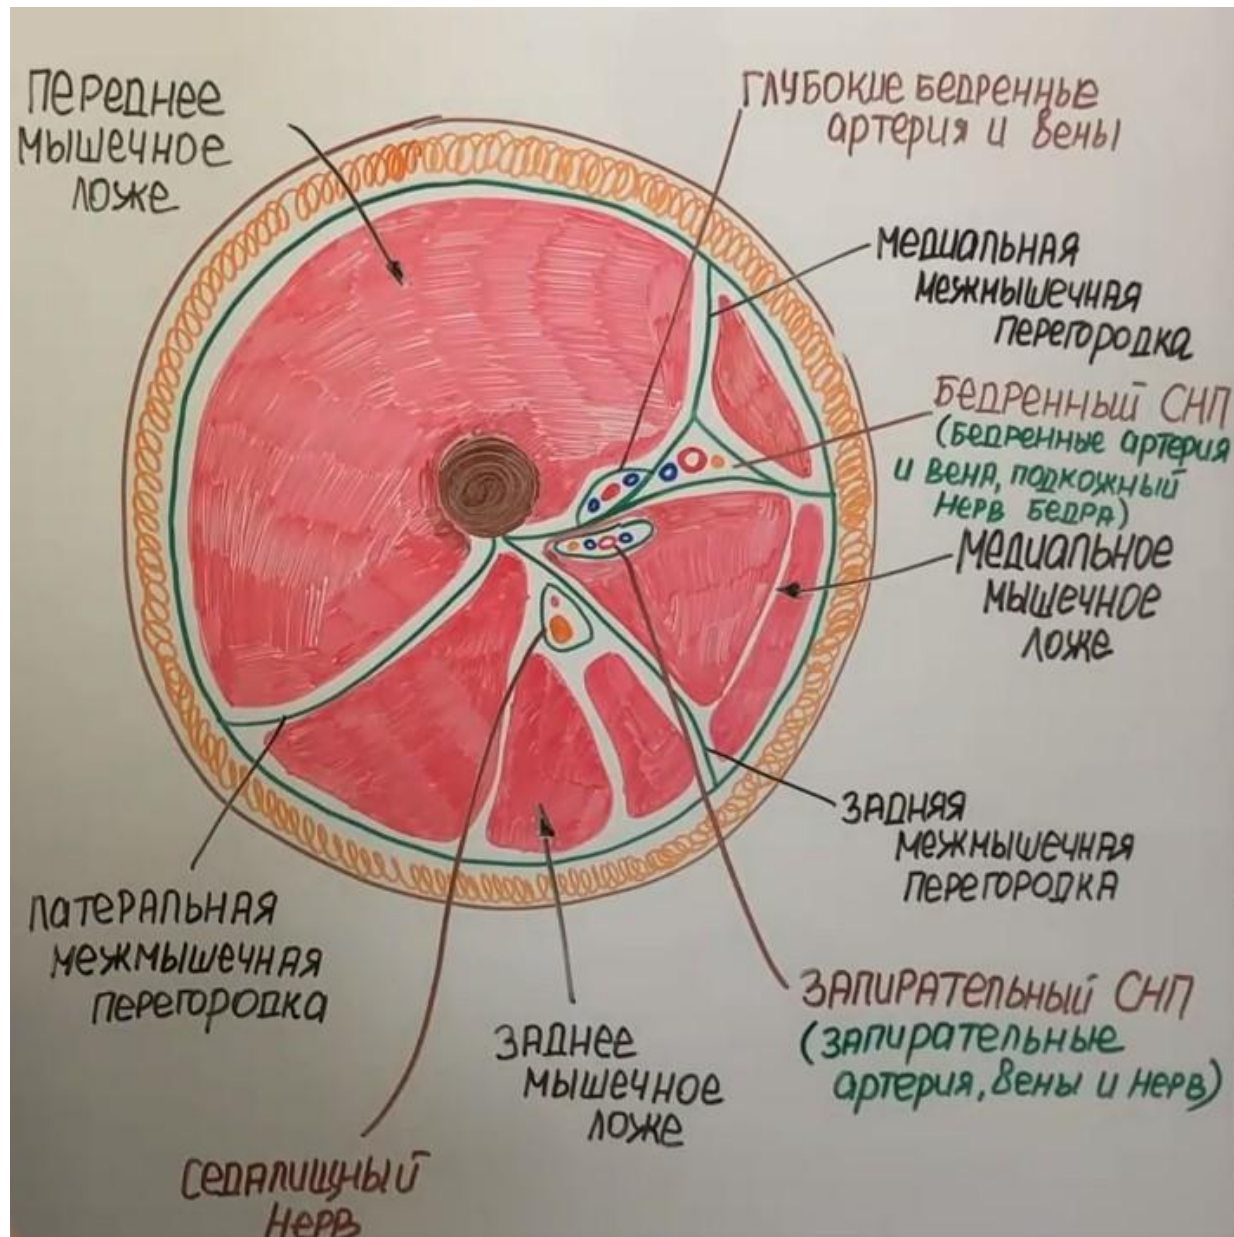 ПЕРЕДНЕЕ
МЫШЕЧНОЕ
ЛОЖЕ
ГЛУБОКИЕ БЕДРЕННЫЕ
артерия и вены
МЕДИАЛЬНАЯ
МЕЖМЫШЕЧНАЯ
ПЕРЕГОРОДКА
БЕДРЕННЫЙ СНП
(БЕДРЕННЫЕ артерия
и ВЕНА, ПОДКОЖНЫЙ
НЕРВ БЕДРА)
МЕДИАЛЬНОЕ
МЫШЕЧНОЕ
ЛОЖЕ
ЗАДНЯЯ
МЕЖМЫШЕЧНАЯ
ПЕРЕГОРОДКА
ЛАТЕРАЛЬНАЯ
МЕЖМЫШЕЧНАЯ
ПЕРЕГОРОДКА
ЗАПИРАТЕЛЬНЫЙ СНП
(ЗАПИРАТЕЛЬНЫЕ
артерия, вены и НЕРВ)
ЗАДНЕЕ
МЫШЕЧНОЕ
ЛОЖЕ
СЕДАЛИЩНЫЙ
НЕРВ